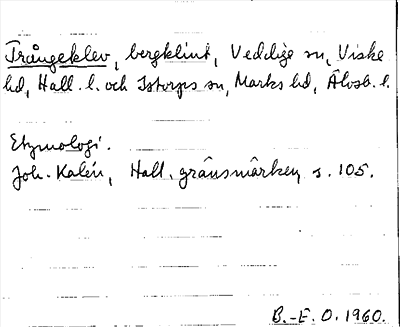 Trångeklev, bergklint, Veddige sn, Viske
hd, Hall. l. och Istorps sn, Marks hd, Älvsb. l.
Etymologi.
Joh. Kalén, Hall. gränsmärken s. 105.
B.-E. O. 1960.